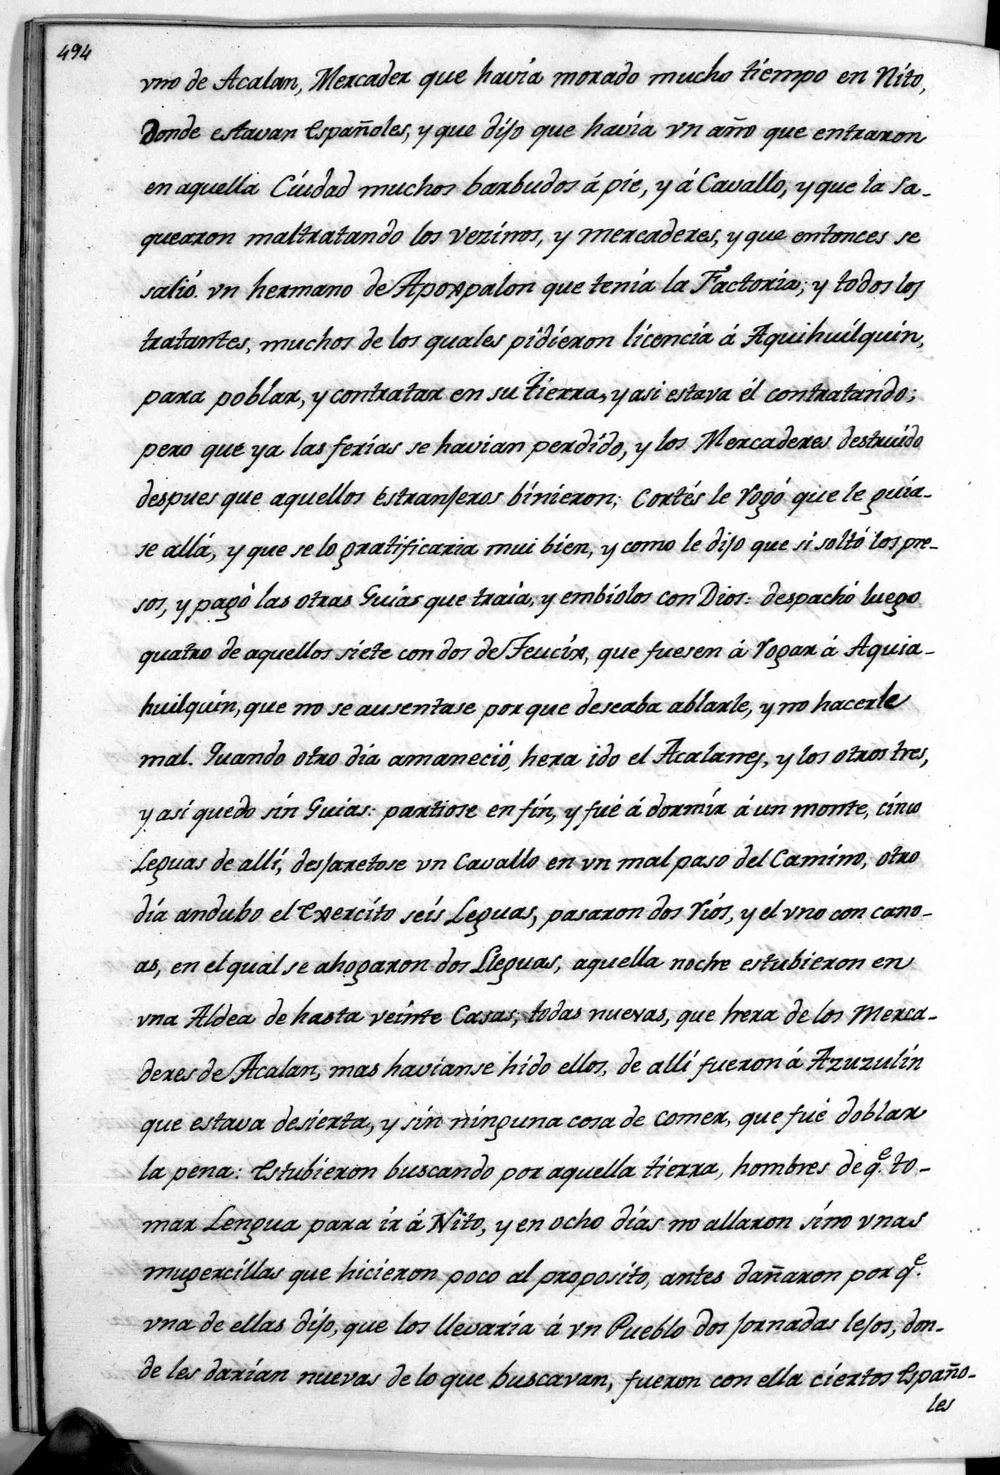 494
vno de Acalan, Mercader que havia morado mucho tiempo en Nito,
donde estavan Españoles, y que dijo que havia vn año que entraron
en aquella Ciudad muchos barbudos á pie, y á Cavallo, y que la sa-
quearon maltratando los vezinos, y mercaderes, y que entonces se
salió vn hermano de Apoxpalon que tenia la Factoria, y todos los
tratantes, muchos de los quales pidieron licencia á Aquihuilquin,
para poblar, y contratar en su tierra, y asi estava él contratando;
pero que ya las ferias se havian perdido, y los Mercaderes destruido
despues que aquellos estranjeros binieron; Cortés le rogó que le guia-
se allá, y que se lo gratificaria mui bien, y como le dijo que si soltó los pre-
sos, y pagó las otras Guias que traia, y embiólos con Dios: despachó luego
quatro de aquellos siete con dos de Teucix, que fuesen á rogar á Aquia-
huilquin, que no se ausentase porque deseaba ablarle, y no hacerle
mal. Quando otro dia amaneció, hera ido el Acalanes, y los otros tres,
y asi quedo sin Guias: partiose en fin, y fué á dormir á un monte, cinco
Leguas de allí, desjaretose vn Cavallo en vn mal paso del Camino, otro
dia andubo el Exercito seis Leguas, pasaron dos rios, y el vno con cano-
as, en el qual se ahogaron dos Lleguas, aquella noche estubieron en
vna Aldea de hasta veinte Casas, todas nuevas, que hera de los Merca-
deres de Acalan, mas havianse hido ellos, de allí fueron á Azuzulin
que estava desierta, y sin ninguna cosa de comer, que fué doblar
la pena: estubieron buscando por aquella tierra, hombres de q.e to-
mar Lengua para ir á Nito, y en ocho días no allaron sino vnas
mugercillas que hicieron poco al proposito, antes dañaron por q.e
vna de ellas dijo, que los llevaria á vn Pueblo dos jornadas lejos, don-
de les darían nuevas de lo que buscavan, fueron con ella ciertos Españo-
les